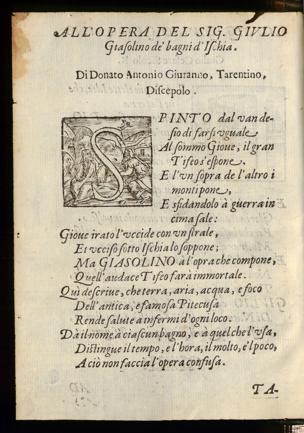 ALL'OPERA DEL SIG. GIVLIO
Giasolino de' bagni d'Ischia.
Di Donato Antonio Giuranno, Tarentino,
Discepolo.
SPINTO dal van de-
sio di farsi vguale
Al sommo Gioue, il gran
Tifeo s'espone,
E l'vn sopra de l'altro i
monti pone,
E sfidandolo à guerra in
cima sale:
Gioue irato l'vccide con vn strale,
Et vcciso sotto Ischia lo soppone;
Ma GIASOLINO à l'opra che compone,
Quell'audace Tifeo farà immortale.
Quì descriue, che terra, aria, acqua, e foco
Dell'antica, e famosa Pitecusa
Rende salute à infermi d'ogni loco.
Dà il nome à ciascun bagno, e a quel che l'vsa,
Distingue il tempo, e l'hora, il molto, e'l poco,
A ciò non faccia l'opera confusa.
TA-